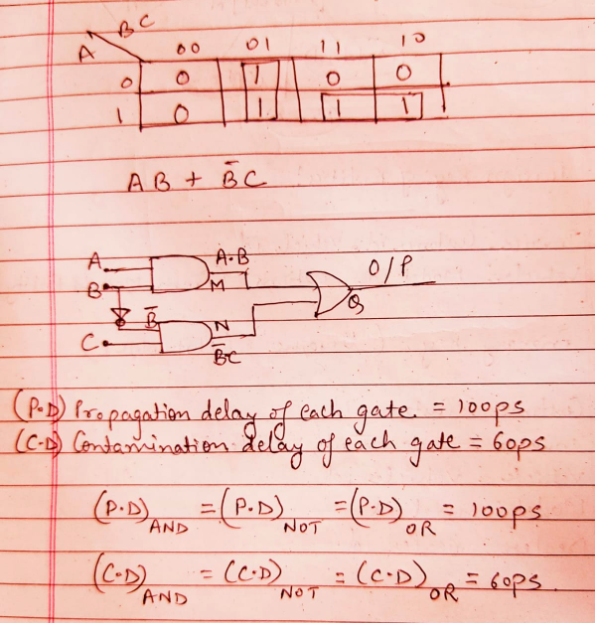 BC
A
00 01 11 10
0 0 1 0 0
1 0 1 1 1
AB + B̅C
A A·B O/P
B M
B̅ N Q
C B̅C
(P.D) Propagation delay of each gate = 100ps
(C.D) Contamination delay of each gate = 60ps
(P.D)AND = (P.D)NOT = (P.D)OR = 100ps
(C.D)AND = (C.D)NOT = (C.D)OR = 60ps